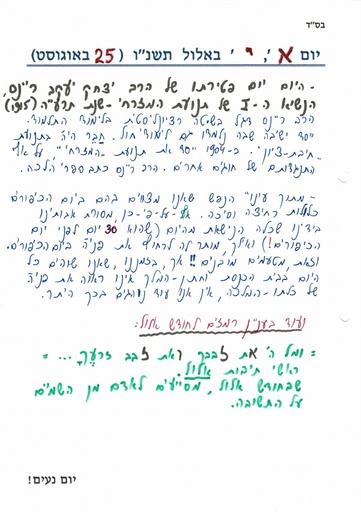 בס"ד
יום א', י' באלול תשנ"ו (25 באוגוסט)
- היום יום פטירתו של הרב יצחק יעקב ריינס,
הנשיא ה-I של תנועת המזרחי - שנת תרע"ה (1915)
הרב ריינס דגל בשיטה רציונליסטית בלימוד התלמוד.
יסד ישיבה שבה נלמדו גם לימודי חול. חבר היה בתנועת
"חיבת-ציון". ב-1902 יסד את תנועת "המזרחי" על אף
התנגדותם של חוגים אחרים. הרב ריינס כתב ספרי הלכה.
- מתוך עינויי הנפש שאנו מצווים בהם ביום הכיפורים
כלולות רחיצה וסיכה. אף-על-פי-כן, מסורת אבותינו
בידינו שכלה הנישאת מהיום (שהוא 30 יום לפני יום
הכיפורים!) ואילך, מותר לה לרחוץ את פניה ביום הכיפורים.
וזאת, מטעמים מובנים!! אך, בזמננו, שאנו שוהים כל
היום בבית הכנסת וחתן-המלך אינו רואה את פניה
של כלתו-המלכה, אין אנו עוד נוהגים בכך היתר.
ועוד בעניין רמזים לחודש אלול:
= ומל ה' את לבבך ואת לבב זרעך... =
ראשי תיבות אלול.
שבחודש אלול, מסייעים לאדם מן השמים
על התשובה.
יום נעים!